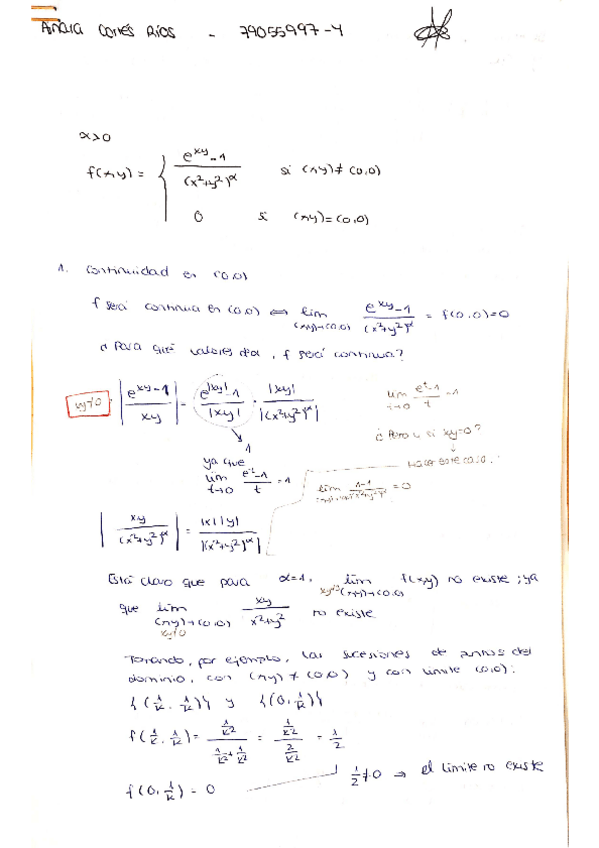 Cortés Ríos - 79055997-Y
α>0
f(x,y) = { (e^{xy}-1)/(x²+y²)^α si (x,y)≠(0,0)
0 si (x,y)=(0,0)
1. Continuidad en (0,0)
f será continua en (0,0) ⟺ lim_{(x,y)→(0,0)} (e^{xy}-1)/(x²+y²)^α = f(0,0)=0
¿Para qué valores de α, f será continua?
xy≠0 |(e^{xy}-1)/xy| = (e^{|xy|}-1)/|xy| · |xy|/|(x²+y²)^α|
lim_{t→0} (e^t-1)/t = 1
¿Pero y si xy=0?
Hacer este caso.
lim_{(x,y)→(0,0)} (1-1)/(x²+y²)^α = 0
1
ya que
lim_{t→0} (e^t-1)/t = 1
|xy/(x²+y²)^α| = |x||y|/|(x²+y²)^α|
Está claro que para α=1, lim_{(x,y)→(0,0), xy≠0} f(x,y) no existe; ya
que lim_{(x,y)→(0,0), xy≠0} xy/(x²+y²) no existe
Tomando, por ejemplo, las sucesiones de puntos del
dominio, con (x,y)≠(0,0) y con límite (0,0):
{(1/k, 1/k)} y {(0, 1/k)}
f(1/k, 1/k) = (1/k²)/(1/k²+1/k²) = (1/k²)/(2/k²) = 1/2
f(0, 1/k) = 0
1/2≠0 ⇒ el límite no existe